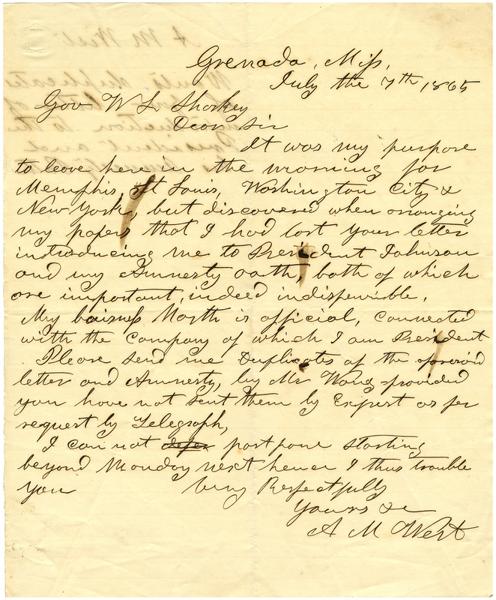 Grenada, Miss,
July the 7th 1865
Gov W L Sharkey
Dear Sir
It was my purpose
to leave here in the morning for
Memphis, St Louis, Washington City &
New York, but discovered when arranging
my papers that I had lost your letter
introducing me to President Johnson
and my Amnesty oath, both of which
are important, indeed indispensible.
My buisness North is official, connected
with the Company of which I am President
Please send me Duplicates of the
letter and Amnesty, by Mr provided
you have not sent them by Express as per
request by Telegraph,
I can not defer postpone starting
beyond Monday next hence I thus trouble
you Very Respectfully
Yours &c
A M West
A M West